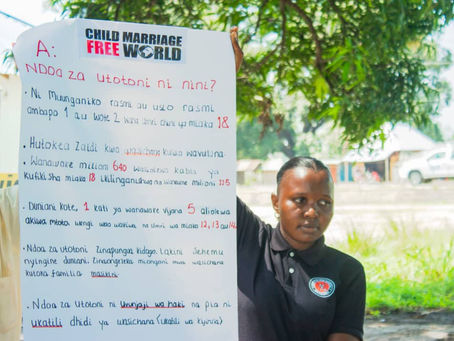 CHILD MARRIAGE
FREE WORLD
A:
Ndoa za utotoni ni nini?
• Ni Muunganiko rasmi au usio rasmi
ambapo 1 au wote 2 wana umri chini ya miaka 18
• Hutokea Zaidi kwa wasichana kuliko wavulana.
• Wanawake milioni 640 waliolewa kabla ya
kufikisha miaka 18 ikilinganishwa na wanaume milioni 115
• Duniani kote, 1 kati ya wanawake vijana 5 aliolewa
akiwa mtoto wengi wao wakiwa na umri wa 12, 13 au 14
• Ndoa za utotoni zinapungua kidogo. Lakini Sehemu
nyingine duniani zinaongezeka miongoni mwa wasichana
kutoka familia maskini.
• Ndoa za Utotoni ni Uvunjaji wa haki na pia ni
ukatili dhidi ya wasichana (ukatili wa kijinsia)